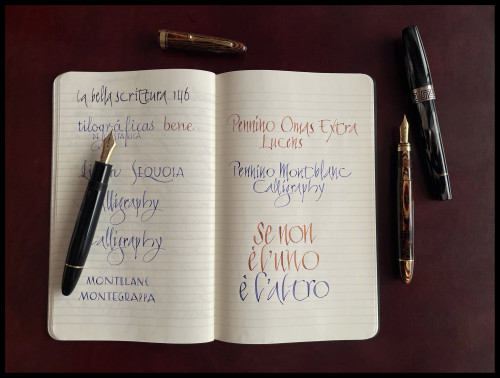 la bella scrittura 146
tilográficas bene
SEQUOIA
Calligraphy
Calligraphy
MONTBLANC
MONTEGRAPPA
Pennino Omas Extra
Lucens
Pennino Montblanc
Calligraphy
se non
è l'uno
è l'altro